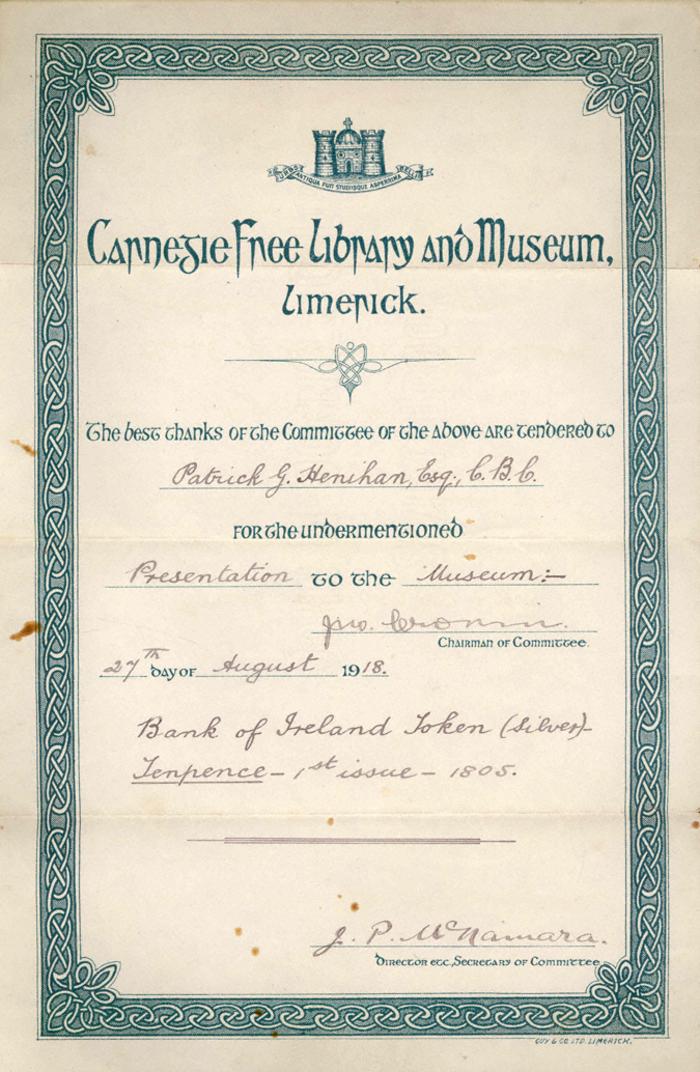 URBS ANTIQUA FUIT STUDIISQUE ASPERRIMA BELLI
Carnegie Free Library and Museum,
Limerick.
The best thanks of the Committee of the above are tendered to
Patrick G. Henihan, Esq., C.B.C.
for the undermentioned
Presentation to the Museum:–
Jno. Cronin.
Chairman of Committee.
27th day of August 1918.
Bank of Ireland Token (Silver)–
Tenpence – 1st issue – 1805.
J. P. McNamara.
Director etc., Secretary of Committee.
GUY & CO. LTD. LIMERICK.